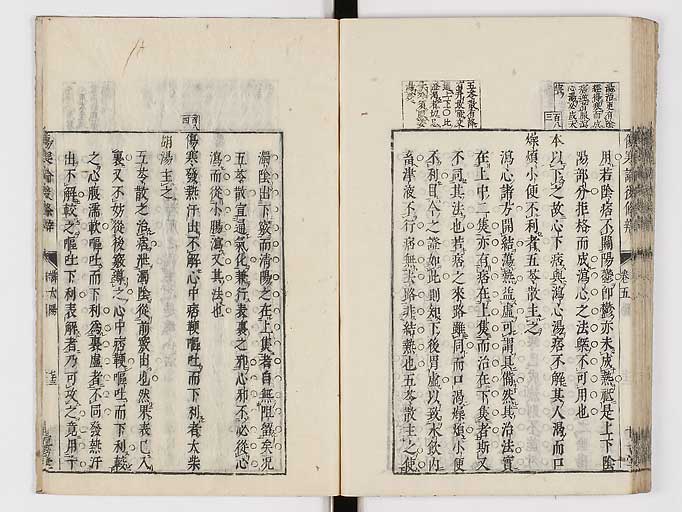 用若陰痞不關陽鬱即鬱亦未成熱祗是上下陰
陽部分拒格而成瀉心之法無不可用也
本以下之故心下痞與瀉心湯痞不解其人渴而口
燥煩小便不利者五苓散主之
瀉心諸方開結蕩熱益虛可謂具備然其治法實
在上中二焦亦有痞在上焦而治在下焦者斯又
不同其法也若痞之來路雖同而口渴燥煩小便
不利目今之證如此則知下後胃虛以致水飲內
畜津液不行痞無去路非結熱也五苓散主之使
濁陰出下竅而清陽之在上焦者自無阻留矣況
五苓散宣通氣化兼行表裏之邪心邪不必從心
瀉而從小腸瀉又其法也
傷寒發熱汗出不解心中痞鞕嘔吐而下利者大柴
胡湯主之
五苓散之治痞泄濁陰從前竅出也然果表已入
裏又不妨從後竅導之心中痞鞕嘔吐而下利較
之心腹濡軟嘔吐而下利為裏虛者不同發熱汗
出不解較之嘔吐下利表解者乃可攻之竟用十
傷寒論後條辨
卷五
太陽